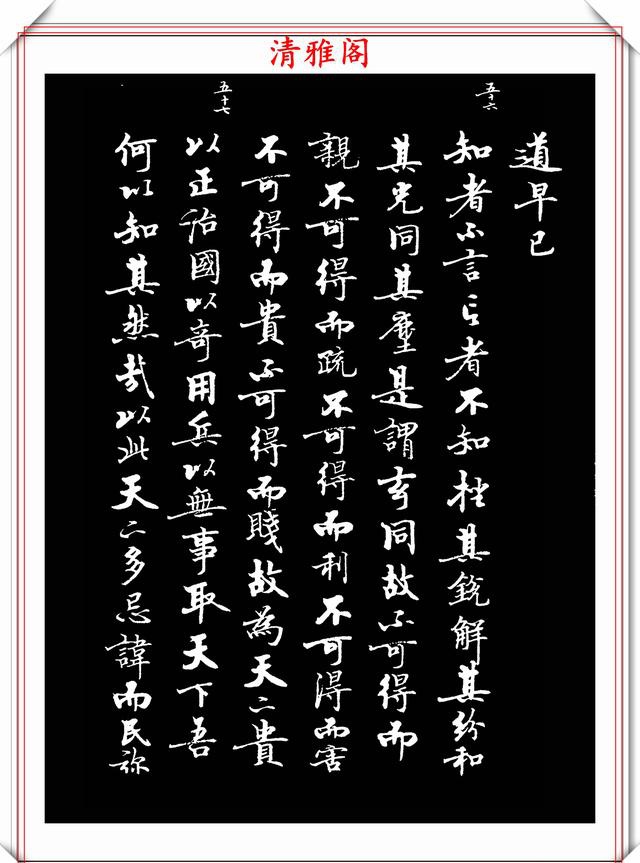 清雅阁
道早已
五十六
知者不言言者不知挫其銳解其紛和
其光同其塵是謂玄同故不可得而
親不可得而疏不可得而利不可得而害
不可得而貴不可得而賤故為天下貴
五十七
以正治國以奇用兵以無事取天下吾
何以知其然哉以此天下多忌諱而民弥